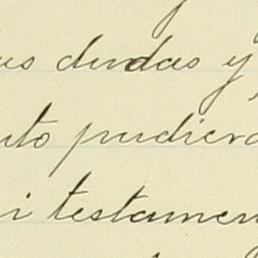 dudas y
pudiera
testamen